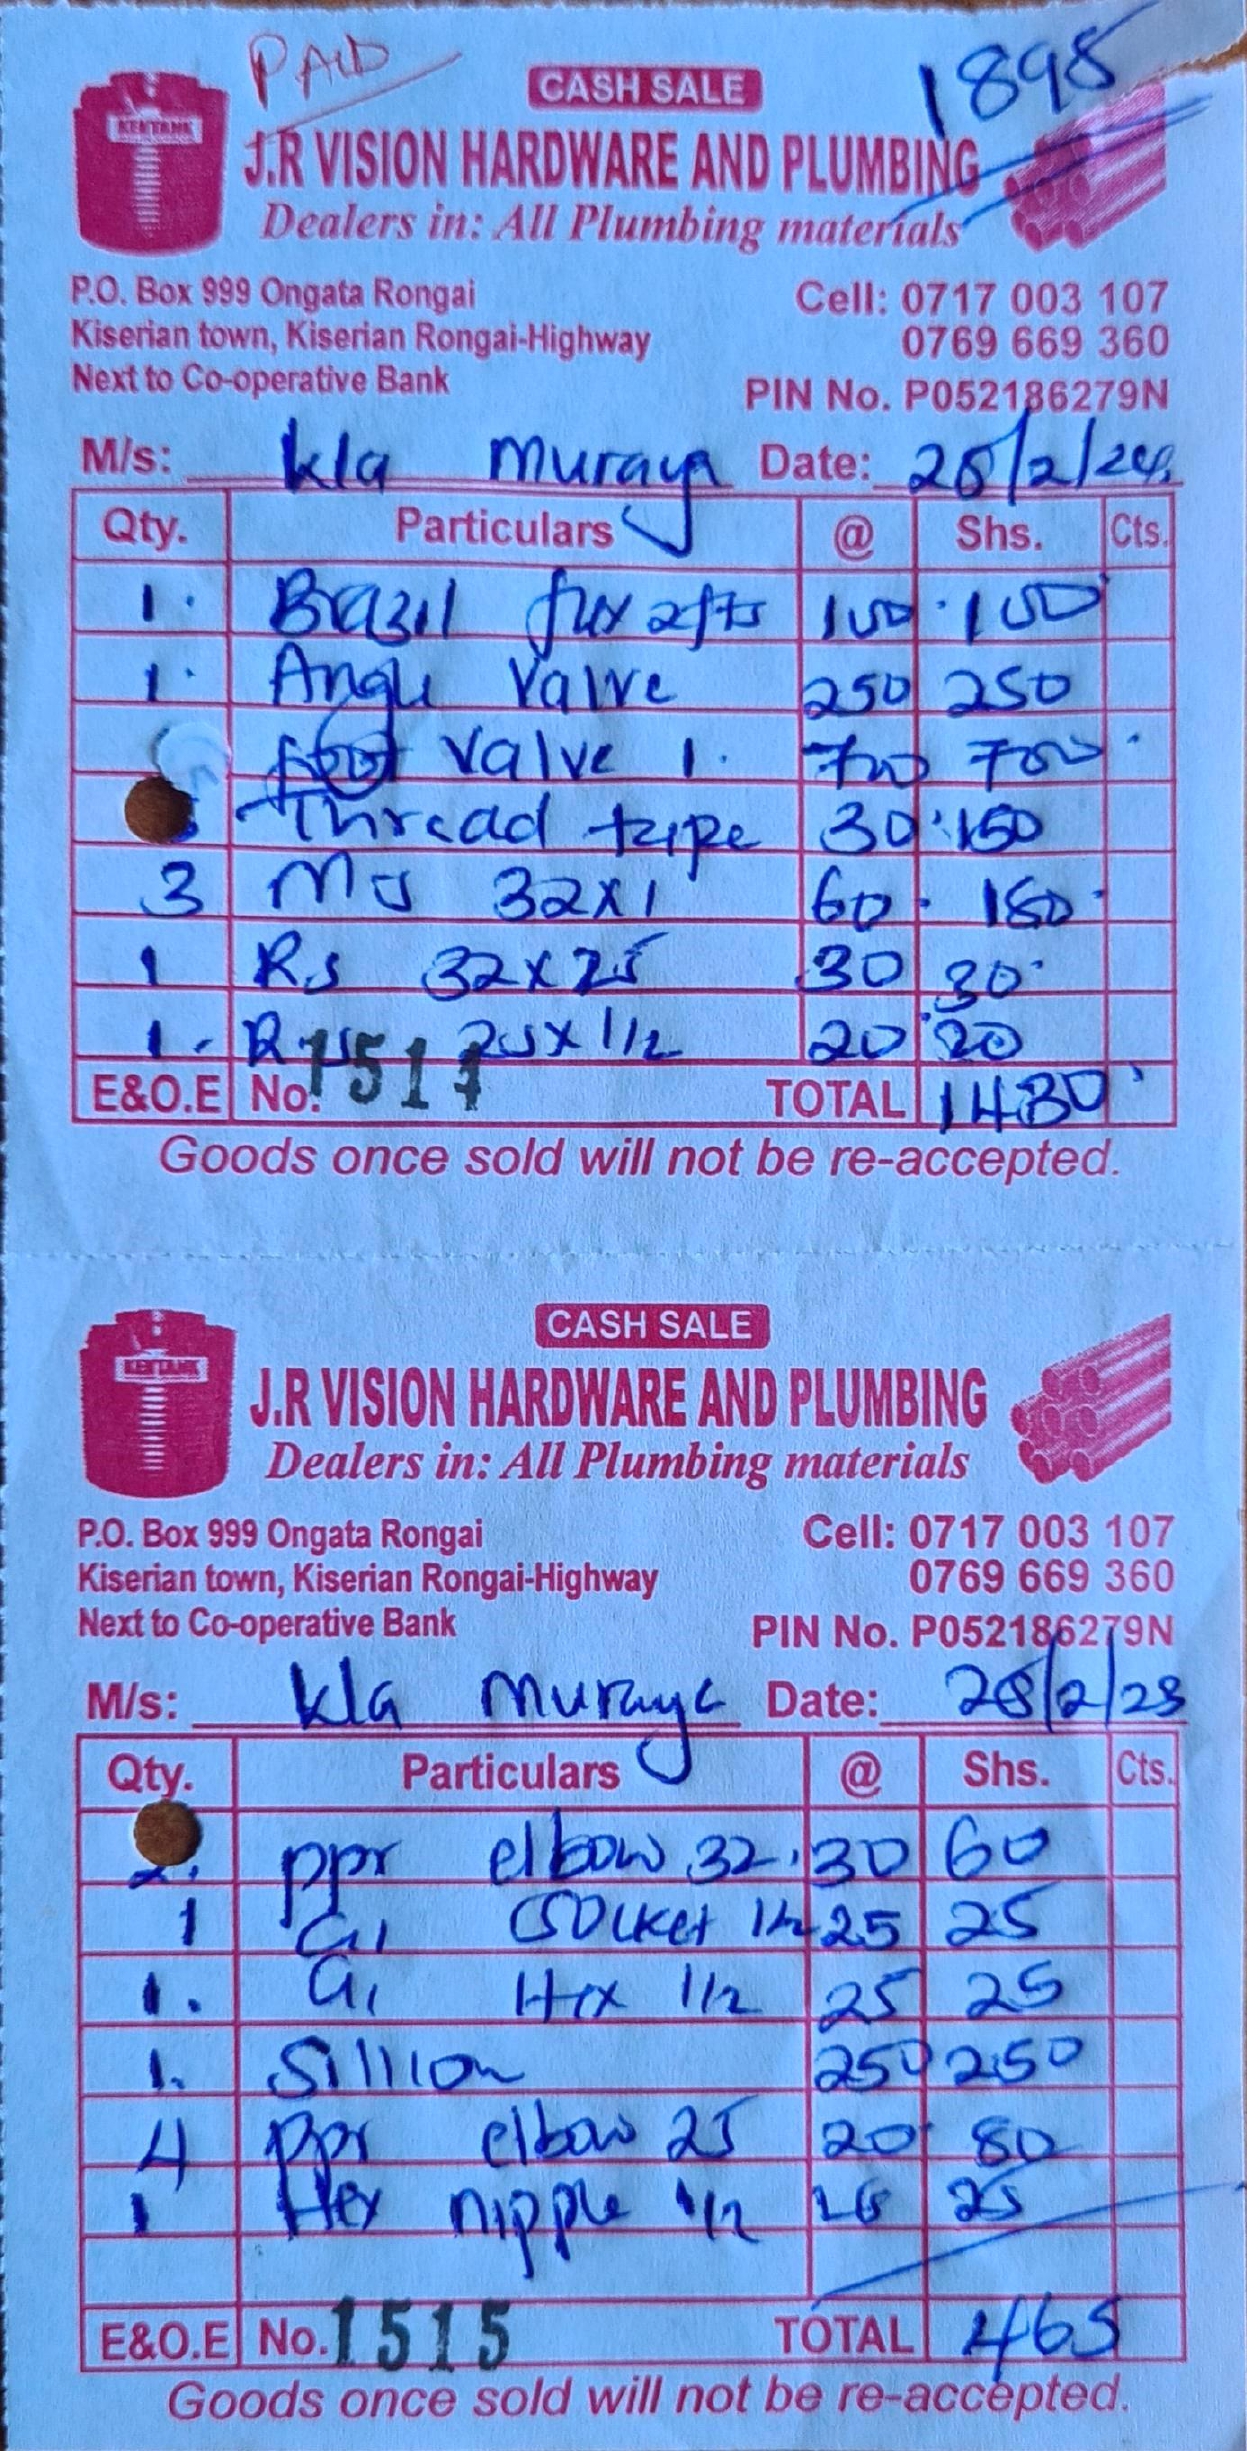 PAID
1895
KENTANK
CASH SALE
J.R VISION HARDWARE AND PLUMBING
Dealers in: All Plumbing materials
P.O. Box 999 Ongata Rongai Cell: 0717 003 107
Kiserian town, Kiserian Rongai-Highway 0769 669 360
Next to Co-operative Bank PIN No. P052186279N
M/s: kla muraya Date: 28/2/24
Qty. Particulars @ Shs. Cts.
1. Brazil flex 2fts 100 100
1. Angle Valve 250 250
foot valve 1. 700 700
Thread tape 30 150
3 MS 32x1 60 180
1 RS 32x25 30 30
1. 25x1/2 20 20
E&O.E No. TOTAL 1430
Goods once sold will not be re-accepted.
KENTANK
CASH SALE
J.R VISION HARDWARE AND PLUMBING
Dealers in: All Plumbing materials
P.O. Box 999 Ongata Rongai Cell: 0717 003 107
Kiserian town, Kiserian Rongai-Highway 0769 669 360
Next to Co-operative Bank PIN No. P052186279N
M/s: kla muraya Date: 28/2/23
Qty. Particulars @ Shs. Cts.
2. ppr elbow 32. 30 60
1 GI socket 1/2 25 25
1. GI Hex 1/2 25 25
1. Sillion 250 250
4 ppr elbow 25 20 80
1 Hex nipple 1/2 25
E&O.E No. 1515 TOTAL 465
Goods once sold will not be re-accepted.